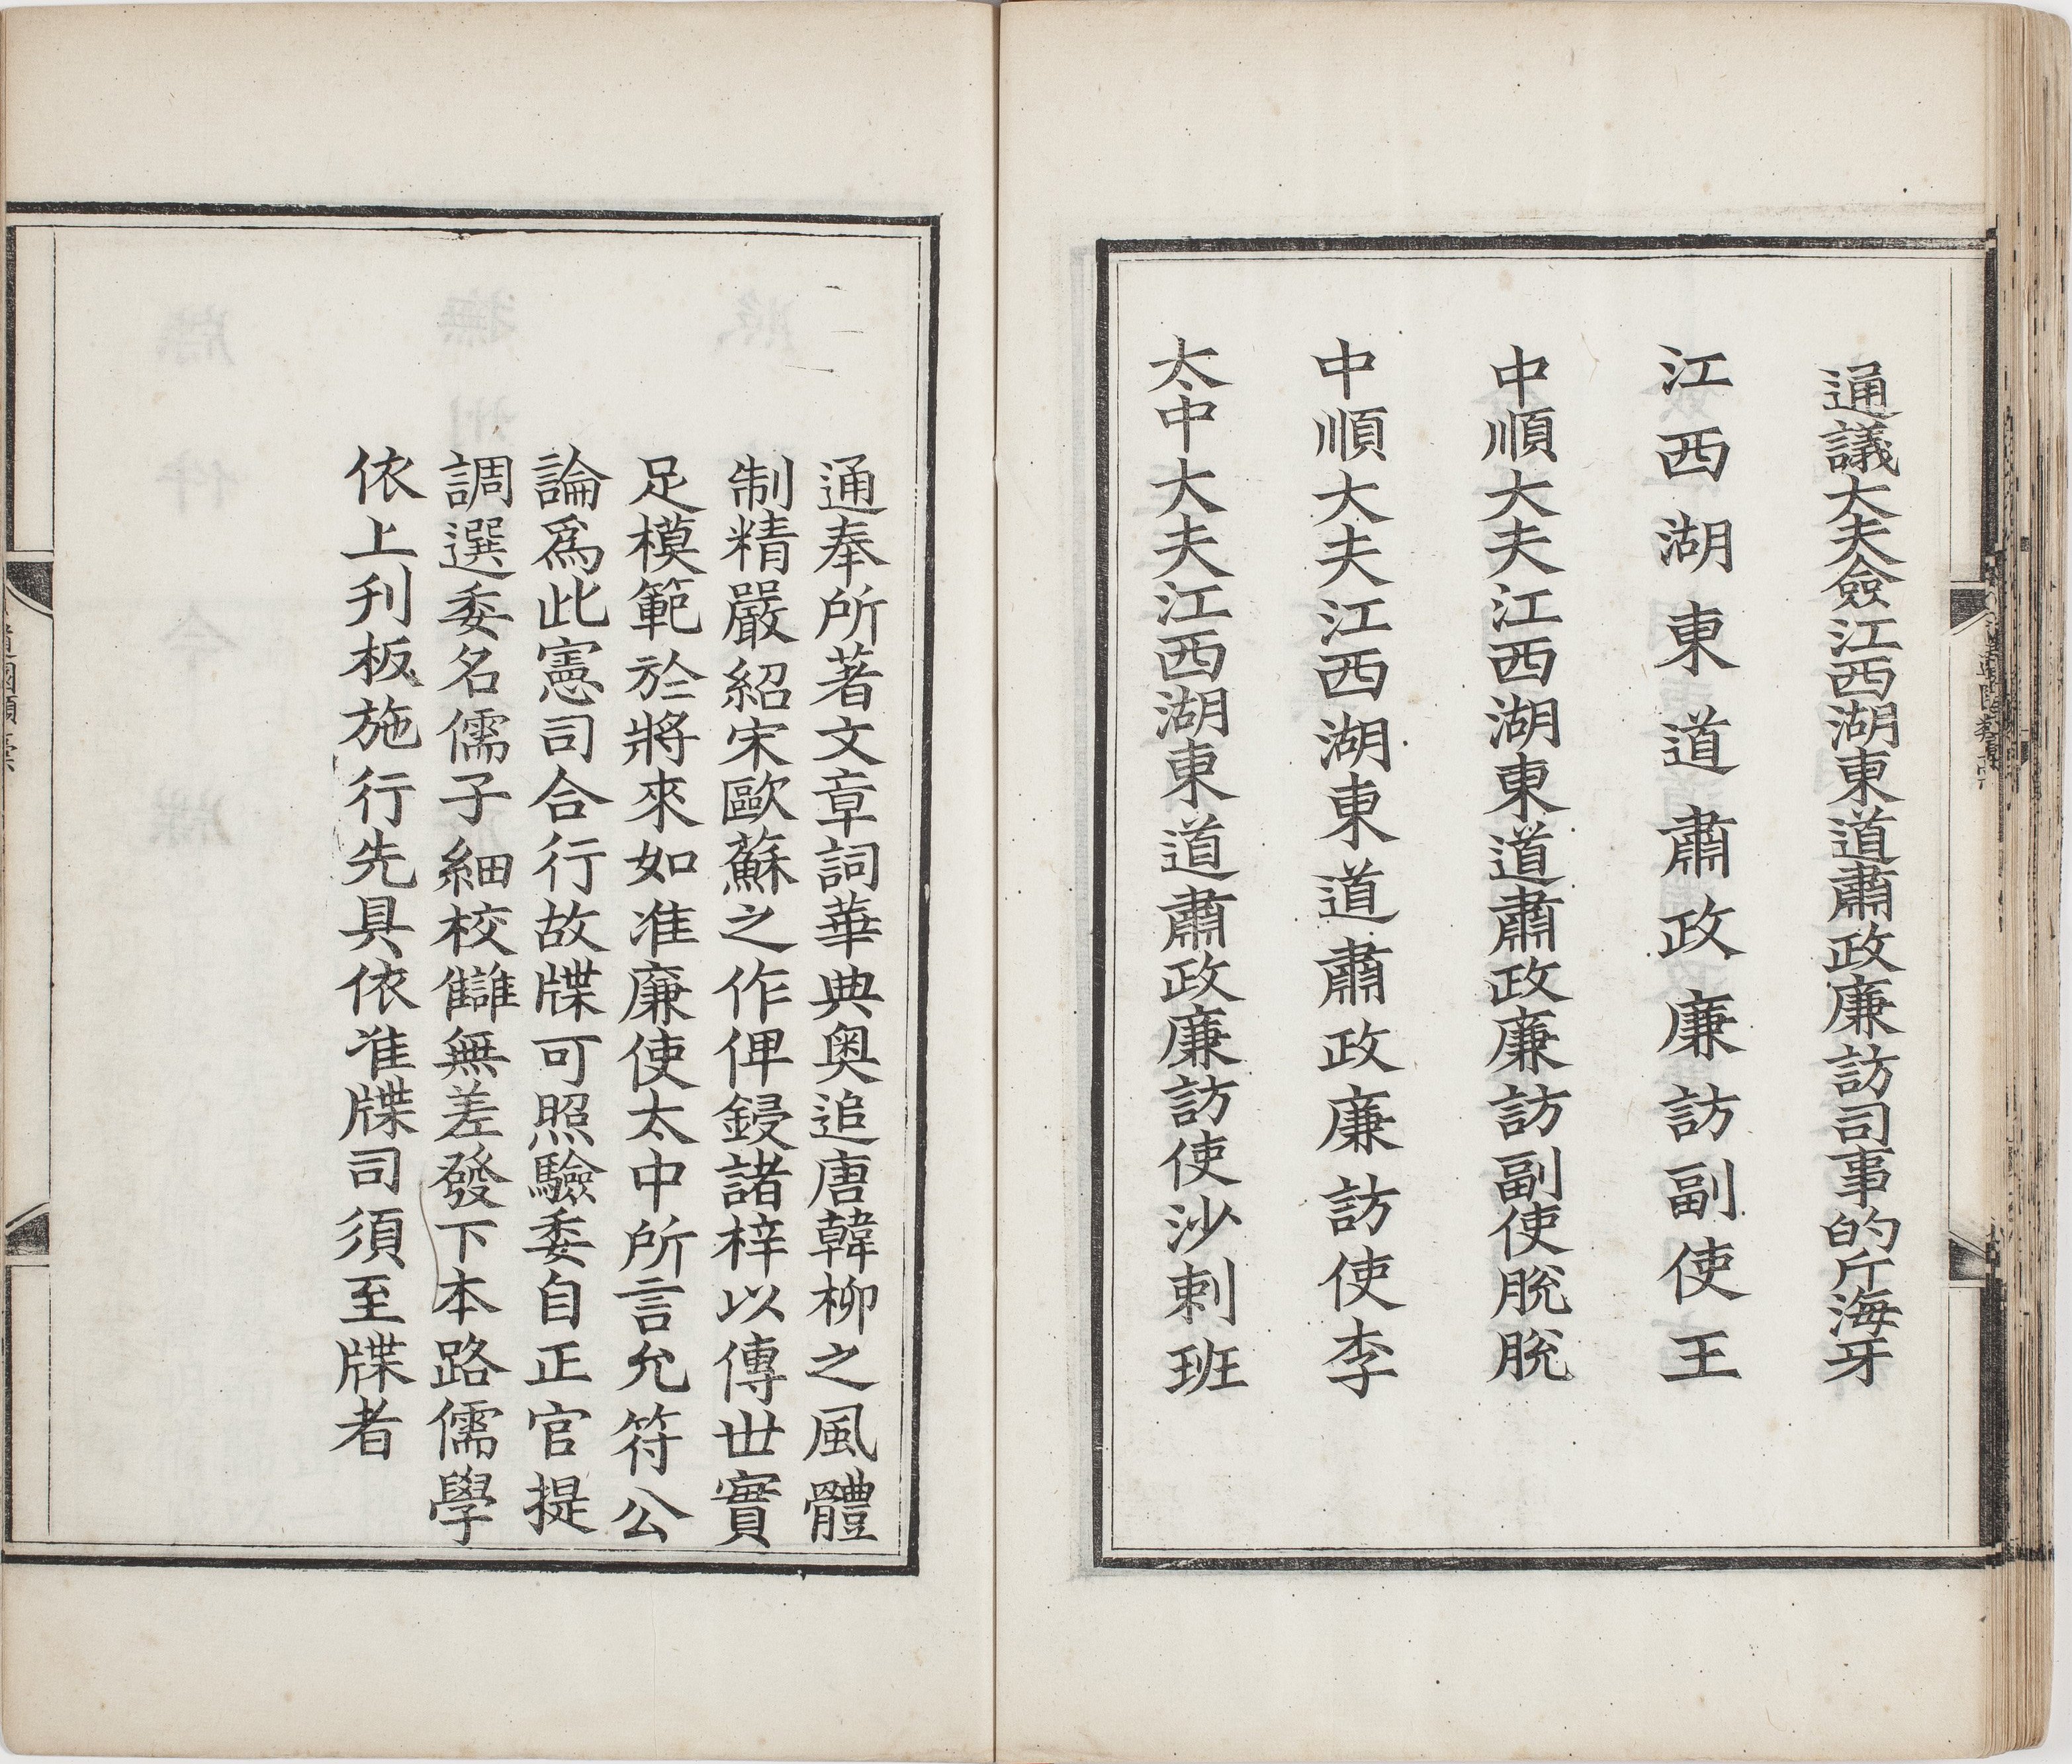 通議大夫僉江西湖東道肅政廉訪司事的斤海牙
江西湖東道肅政廉訪副使王
中順大夫江西湖東道肅政廉訪副使脫脫
中順大夫江西湖東道肅政廉訪使李
太中大夫江西湖東道肅政廉訪使沙剌班
通奉所著文章詞華典奧追唐韓柳之風體
制精嚴紹宋歐蘇之作俾鋟諸梓以傳世實
足模範於將來如准廉使太中所言允符公
論爲此憲司合行故牒可照驗委自正官提
調選委名儒子細校讎無差發下本路儒學
依上刋板施行先具依准牒司須至牒者